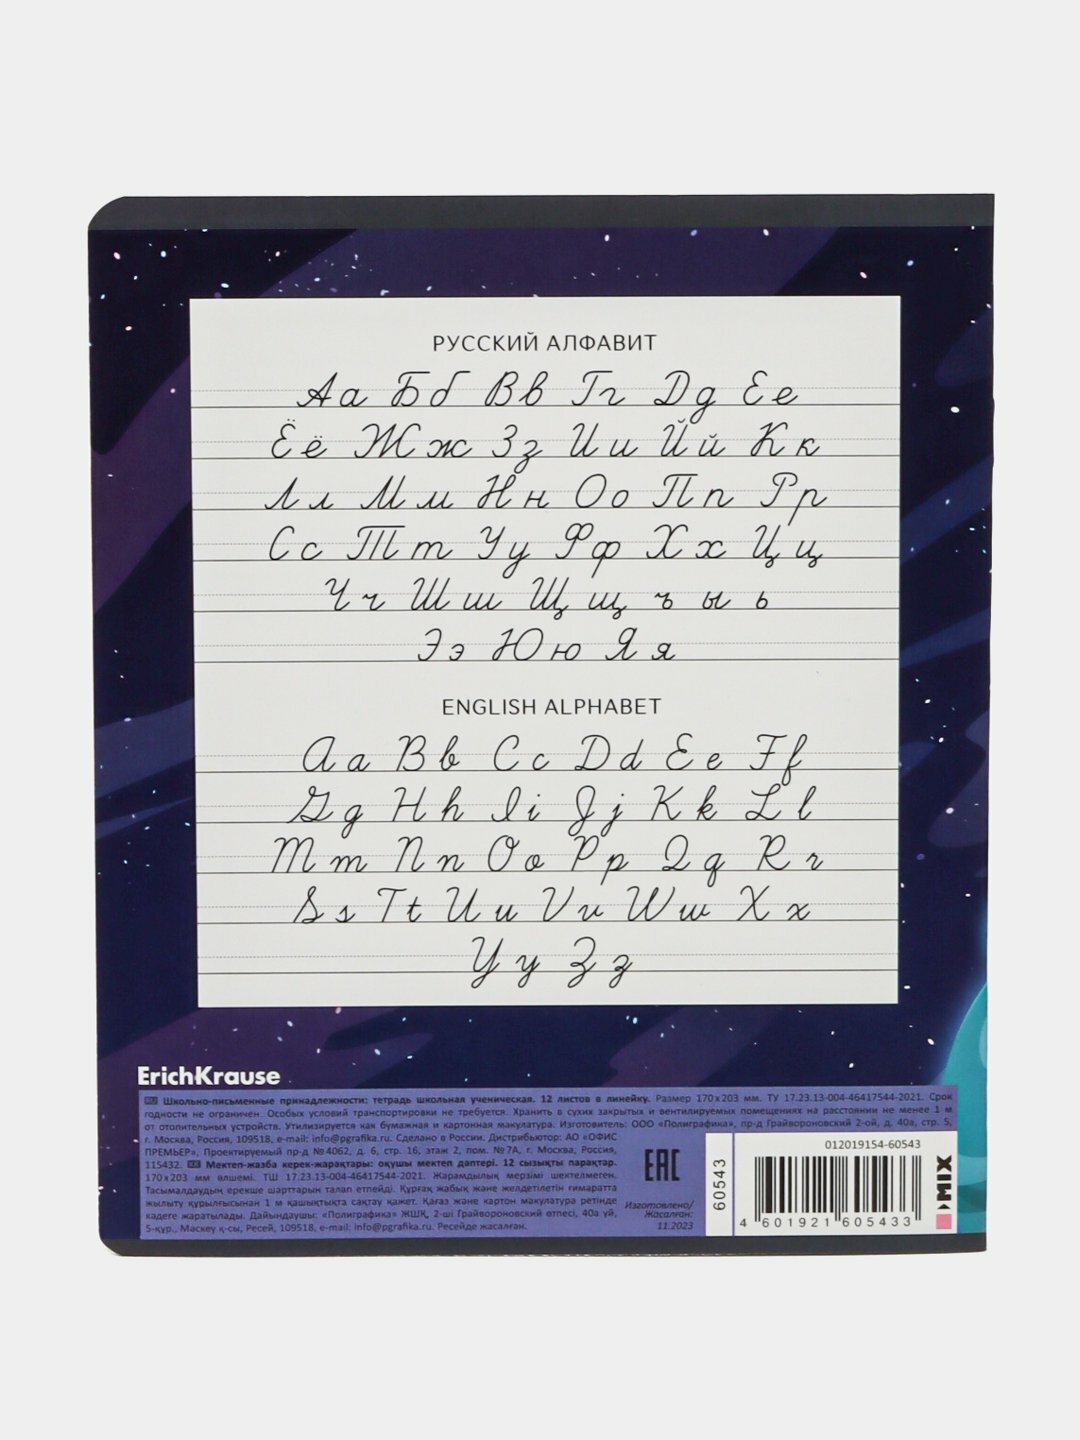 РУССКИЙ АЛФАВИТ
Аа Бб Вв Гг Дд Ее
Ёё Жж Зз Ии Йй Кк
Лл Мм Нн Оо Пп Рр
Сс Тт Уу Фф Хх Цц
Чч Шш Щщ ъ ы ь
Ээ Юю Яя
ENGLISH ALPHABET
Aa Bb Cc Dd Ee Ff
Gg Hh Ii Jj Kk Ll
Mm Nn Oo Pp Qq Rr
Ss Tt Uu Vv Ww Xx
Yy Zz
ErichKrause
RU Школьно-письменные принадлежности: тетрадь школьная ученическая. 12 листов в линейку. Размер 170х203 мм. ТУ 17.23.13-004-46417544-2021. Срок
годности не ограничен. Особых условий транспортировки не требуется. Хранить в сухих закрытых и вентилируемых помещениях на расстоянии не менее 1 м
от отопительных устройств. Утилизируется как бумажная и картонная макулатура. Изготовитель: ООО «Полиграфика», пр-д Грайвороновский 2-ой, д. 40а, стр. 5,
г. Москва, Россия, 109518, e-mail: info@pgrafika.ru. Сделано в России. Дистрибьютор: АО «ОФИС
ПРЕМЬЕР», Проектируемый пр-д №4062, д. 6, стр. 16, этаж 2, пом. №7А, г. Москва, Россия,
115432. KZ Мектеп-жазба керек-жарақтары: оқушы мектеп дәптері. 12 сызықты парақтар.
170х203 мм өлшемі. ТШ 17.23.13-004-46417544-2021. Жарамдылық мерзімі шектелмеген.
Тасымалдаудың ерекше шарттарын талап етпейді. Құрғақ жабық және желдетілетін ғимаратта
жылыту құрылғысынан 1 м қашықтықта сақтау қажет. Қағаз және картон макулатура ретінде
кәдеге жаратылады. Дайындаушы: «Полиграфика» ЖШҚ, 2-ші Грайвороновский өтпесі, 40а үй,
5-құр., Мәскеу қ-сы, Ресей, 109518, e-mail: info@pgrafika.ru. Ресейде жасалған.
EAC
Изготовлено/
Жасалған:
11.2023
60543
012019154-60543
4 601921 605433
MIX